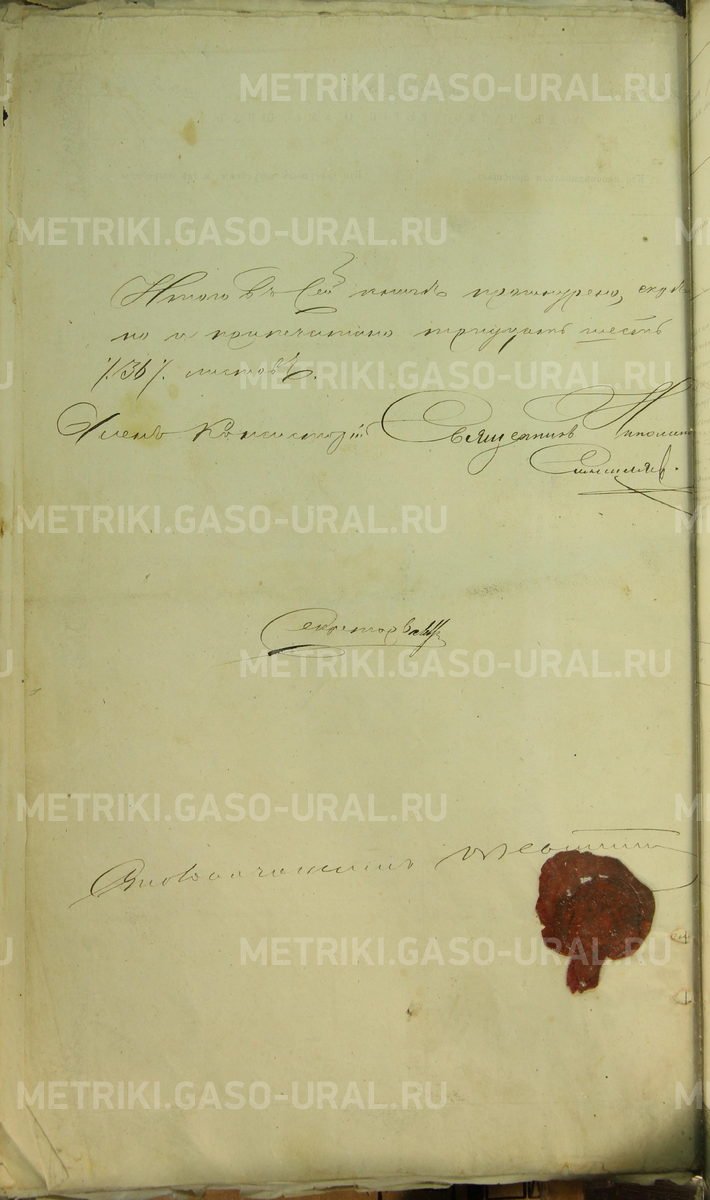 METRIKI.GASO-URAL.RU
METRIKI.GASO-URAL.RU
Итого въ сей книгѣ прошнурено, скрѣпле
но и припечатано тридцать шесть
/.36/. листовъ.
METRIKI.GASO-URAL.RU
Членъ Консисторіи Священникъ Николай
METRIKI.GASO-URAL.RU
Секретарь
METRIKI.GASO-URAL.RU
METRIKI.GASO-URAL.RU
Столоначальникъ
METRIKI.GASO-URAL.RU
METRIKI.GASO-URAL.RU